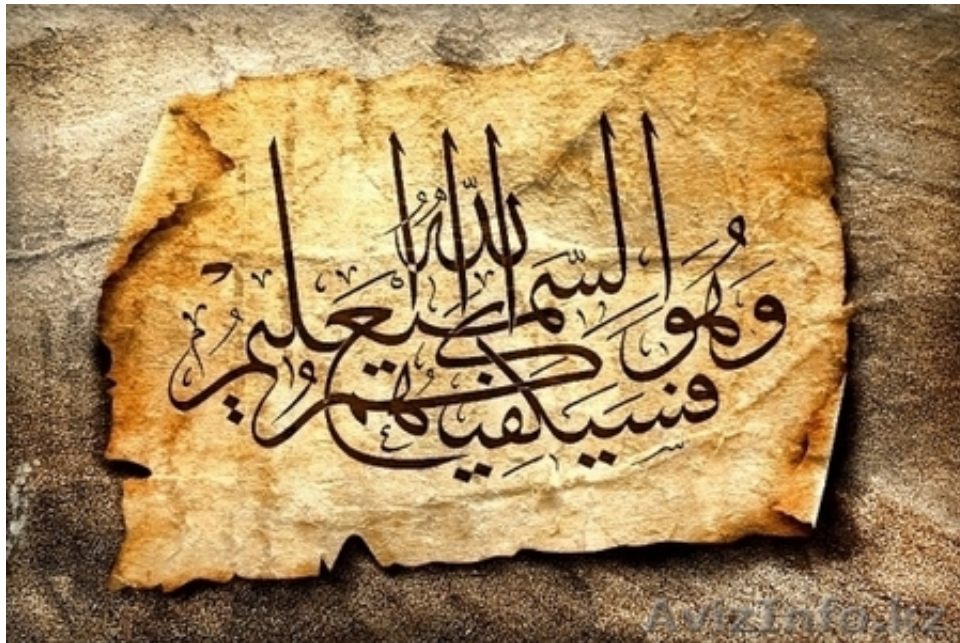 فَسَيَكْفِيكَهُمُ اللّٰهُ
وَهُوَ السَّمِيعُ الْعَلِيمُ
AvizInfo.kz